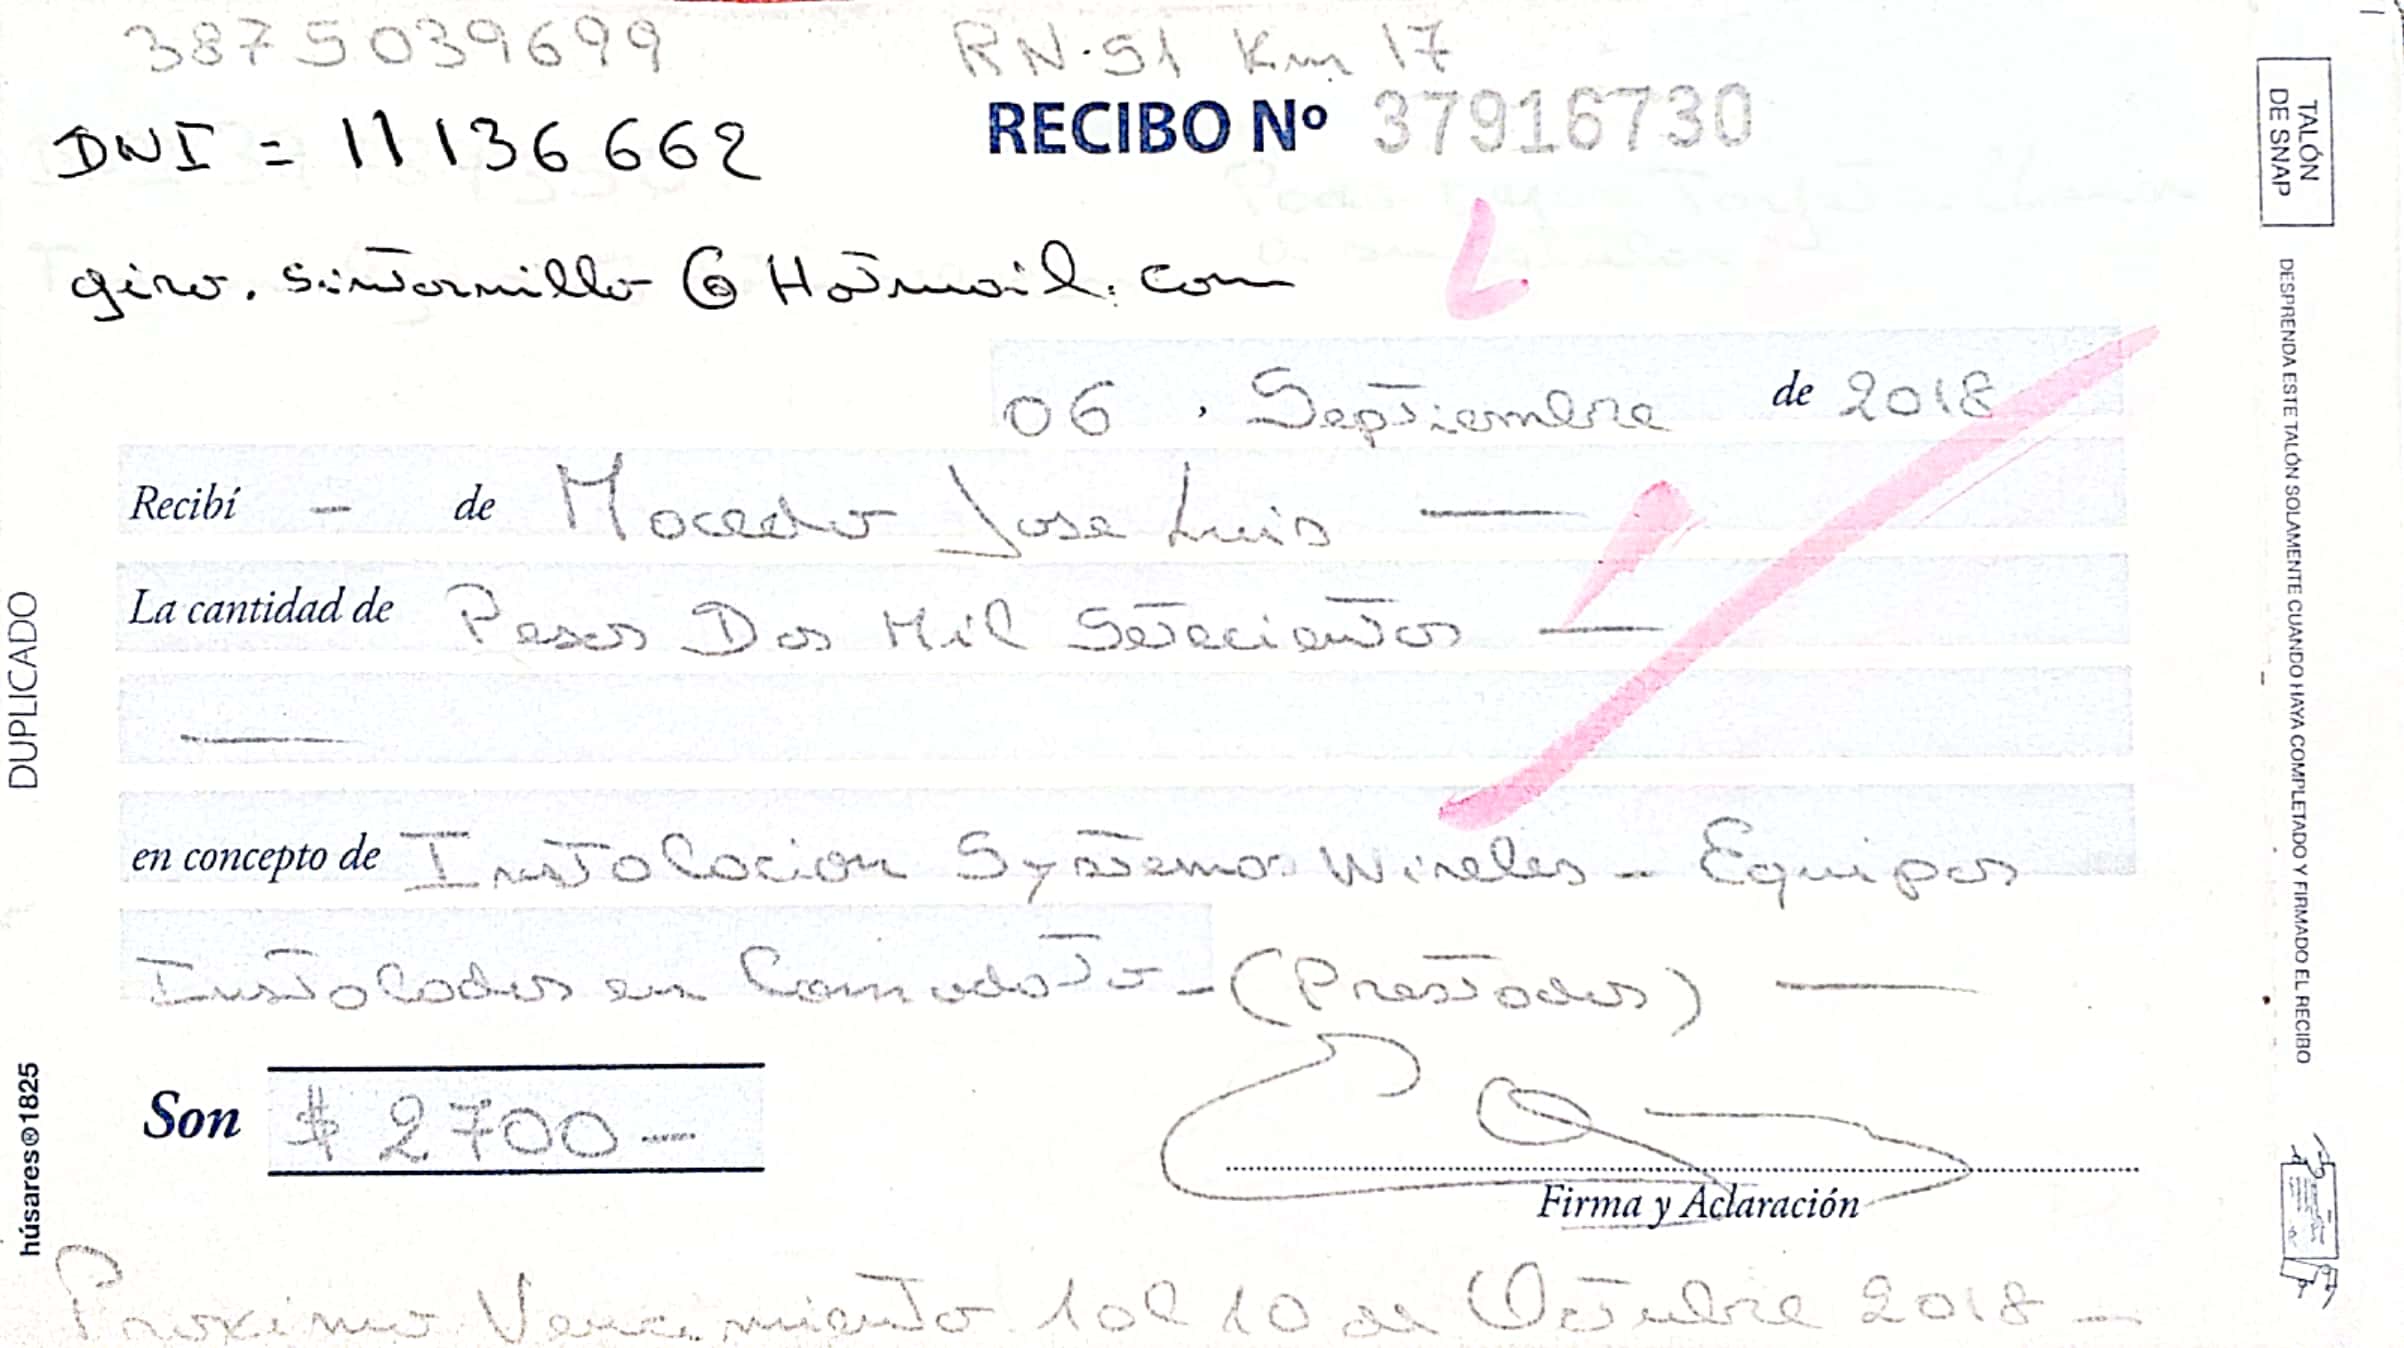 3875039699 RN-51 Km 17
RECIBO Nº 37916730
DNI = 11136662
giro.sintornillo@Hotmail.com
06 , Septiembre de 2018
Recibí — de Macedo Jose Luis —
La cantidad de Pesos Dos Mil Setecientos —
—
en concepto de Instalacion Systemas Wireles - Equipos
Instalados en Comodato - (Prestados) —
Son $ 2700 —
Firma y Aclaración
Proximo Vencimiento 1 al 10 de Octubre 2018 —
DUPLICADO
húsares®1825
TALÓN
DE SNAP
DESPRENDA ESTE TALÓN SOLAMENTE CUANDO HAYA COMPLETADO Y FIRMADO EL RECIBO